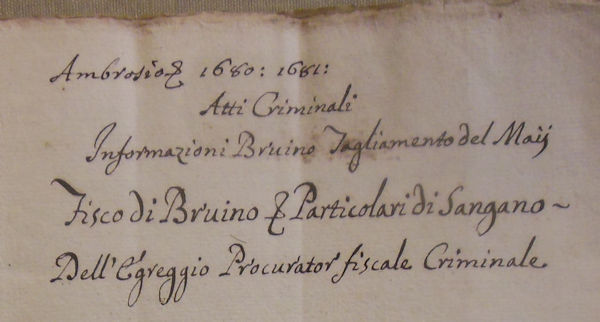 Ambrosio & 1680: 1681:
Atti Criminali
Informazioni Bruino Tagliamento del Maij
Fisco di Bruino & Particolari di Sangano ~
Dell'Egreggio Procurator fiscale Criminale